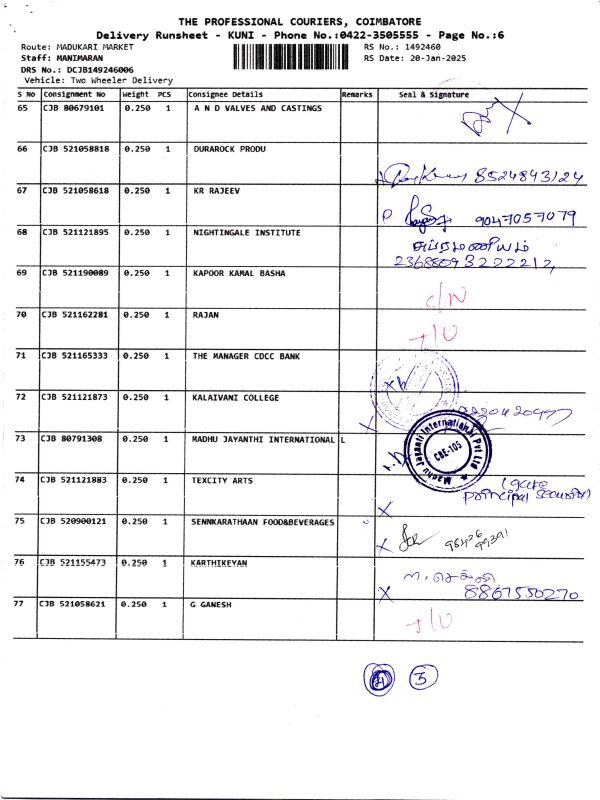 THE PROFESSIONAL COURIERS, COIMBATORE
Delivery Runsheet - KUNI - Phone No.:0422-3505555 - Page No.:6
Route: MADUKARI MARKET
RS No.: 1492460
Staff: MANIMARAN
RS Date: 20-Jan-2025
DRS No.: DCJB149246006
Vehicle: Two Wheeler Delivery
S No Consignment No Weight PCS Consignee Details Remarks Seal & Signature
65 CJB 80679101 0.250 1 A N D VALVES AND CASTINGS
66 CJB 521058818 0.250 1 DURAROCK PRODU
8524843124
67 CJB 521058618 0.250 1 KR RAJEEV
9047057079
68 CJB 521121895 0.250 1 NIGHTINGALE INSTITUTE
சுப்ரமணியம்
69 CJB 521190089 0.250 1 KAPOOR KAMAL BASHA
C/N
70 CJB 521162281 0.250 1 RAJAN
I/U
71 CJB 521165333 0.250 1 THE MANAGER CDCC BANK
72 CJB 521121873 0.250 1 KALAIVANI COLLEGE
73 CJB 80791308 0.250 1 MADHU JAYANTHI INTERNATIONAL L
Madhu Jayanti International Pvt Ltd
CBE-105
74 CJB 521121883 0.250 1 TEXCITY ARTS
principal
75 CJB 520900121 0.250 1 SENNKARATHAAN FOOD&BEVERAGES
76 CJB 521155473 0.250 1 KARTHIKEYAN
8867550270
77 CJB 521058621 0.250 1 G GANESH
I/U
5